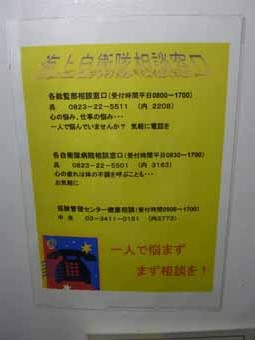 海上自衛隊相談窓口
各総監部相談窓口(受付時間平日0800~1700)
呉 0823-22-5511 (内 2208)
心の悩み、仕事の悩み・・・
一人で悩んでいませんか? 気軽に電話を
各自衛隊病院相談窓口(受付時間平日0830~1700)
呉 0823-22-5501 (内 3163)
心の疲れは体の不調を呼ぶことも・・・
お気軽に
保険管理センター健康相談(受付時間0900~1700)
中央 03-3411-0151 (内3773)
一人で悩まず
まず相談を!